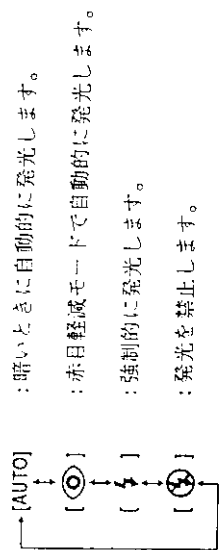 [AUTO]：暗いときに自動的に発光します。
[ ]：赤目軽減モードで自動的に発光します。
[ ]：強制的に発光します。
[ ]：発光を禁止します。